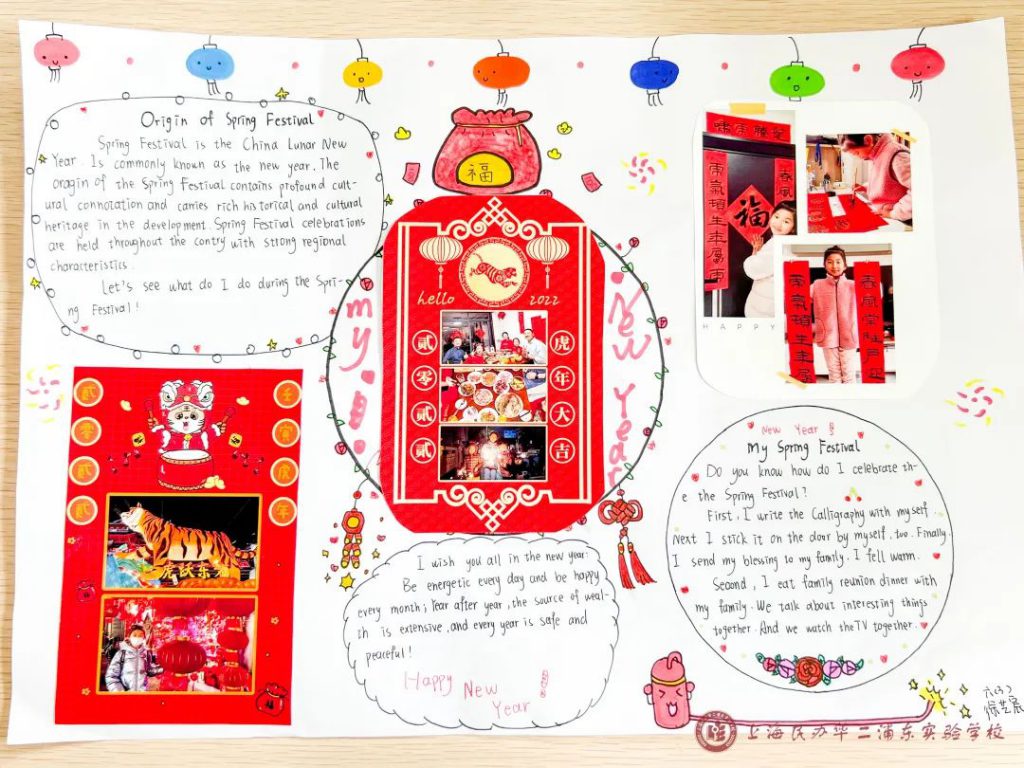 Origin of Spring Festival
Spring Festival is the China Lunar New
Year. Is commonly known as the new year. The
oragin of the Spring Festival contains profound cult-
ural connotation and carries rich historical and cultural
heritage in the development. Spring Festival celebrations
are held throughout the contry with strong regional
characteristics.
Let's see what do I do during the Spri-
ng Festival!
福
my
New Year
hello 2022
贰零贰贰
虎年大吉
福
HAPPY
贰零贰贰
壬寅虎年
虎跃东
I wish you all in the new year:
Be energetic every day and be happy
every month; Year after year, the source of weal-
th is extensive, and every year is safe and
peaceful!
Happy New
Year
New Year
My Spring Festival
Do you know how do I celebrate th-
e the Spring Festival?
First, I write the Calligraphy with myself.
Next I stick it on the door by myself, too. Finally.
I send my blessing to my family. I fell warm.
Second, I eat family reunion dinner with
my family. We talk about interesting things
together. And we watch the TV together.
上海民办华二浦东实验学校